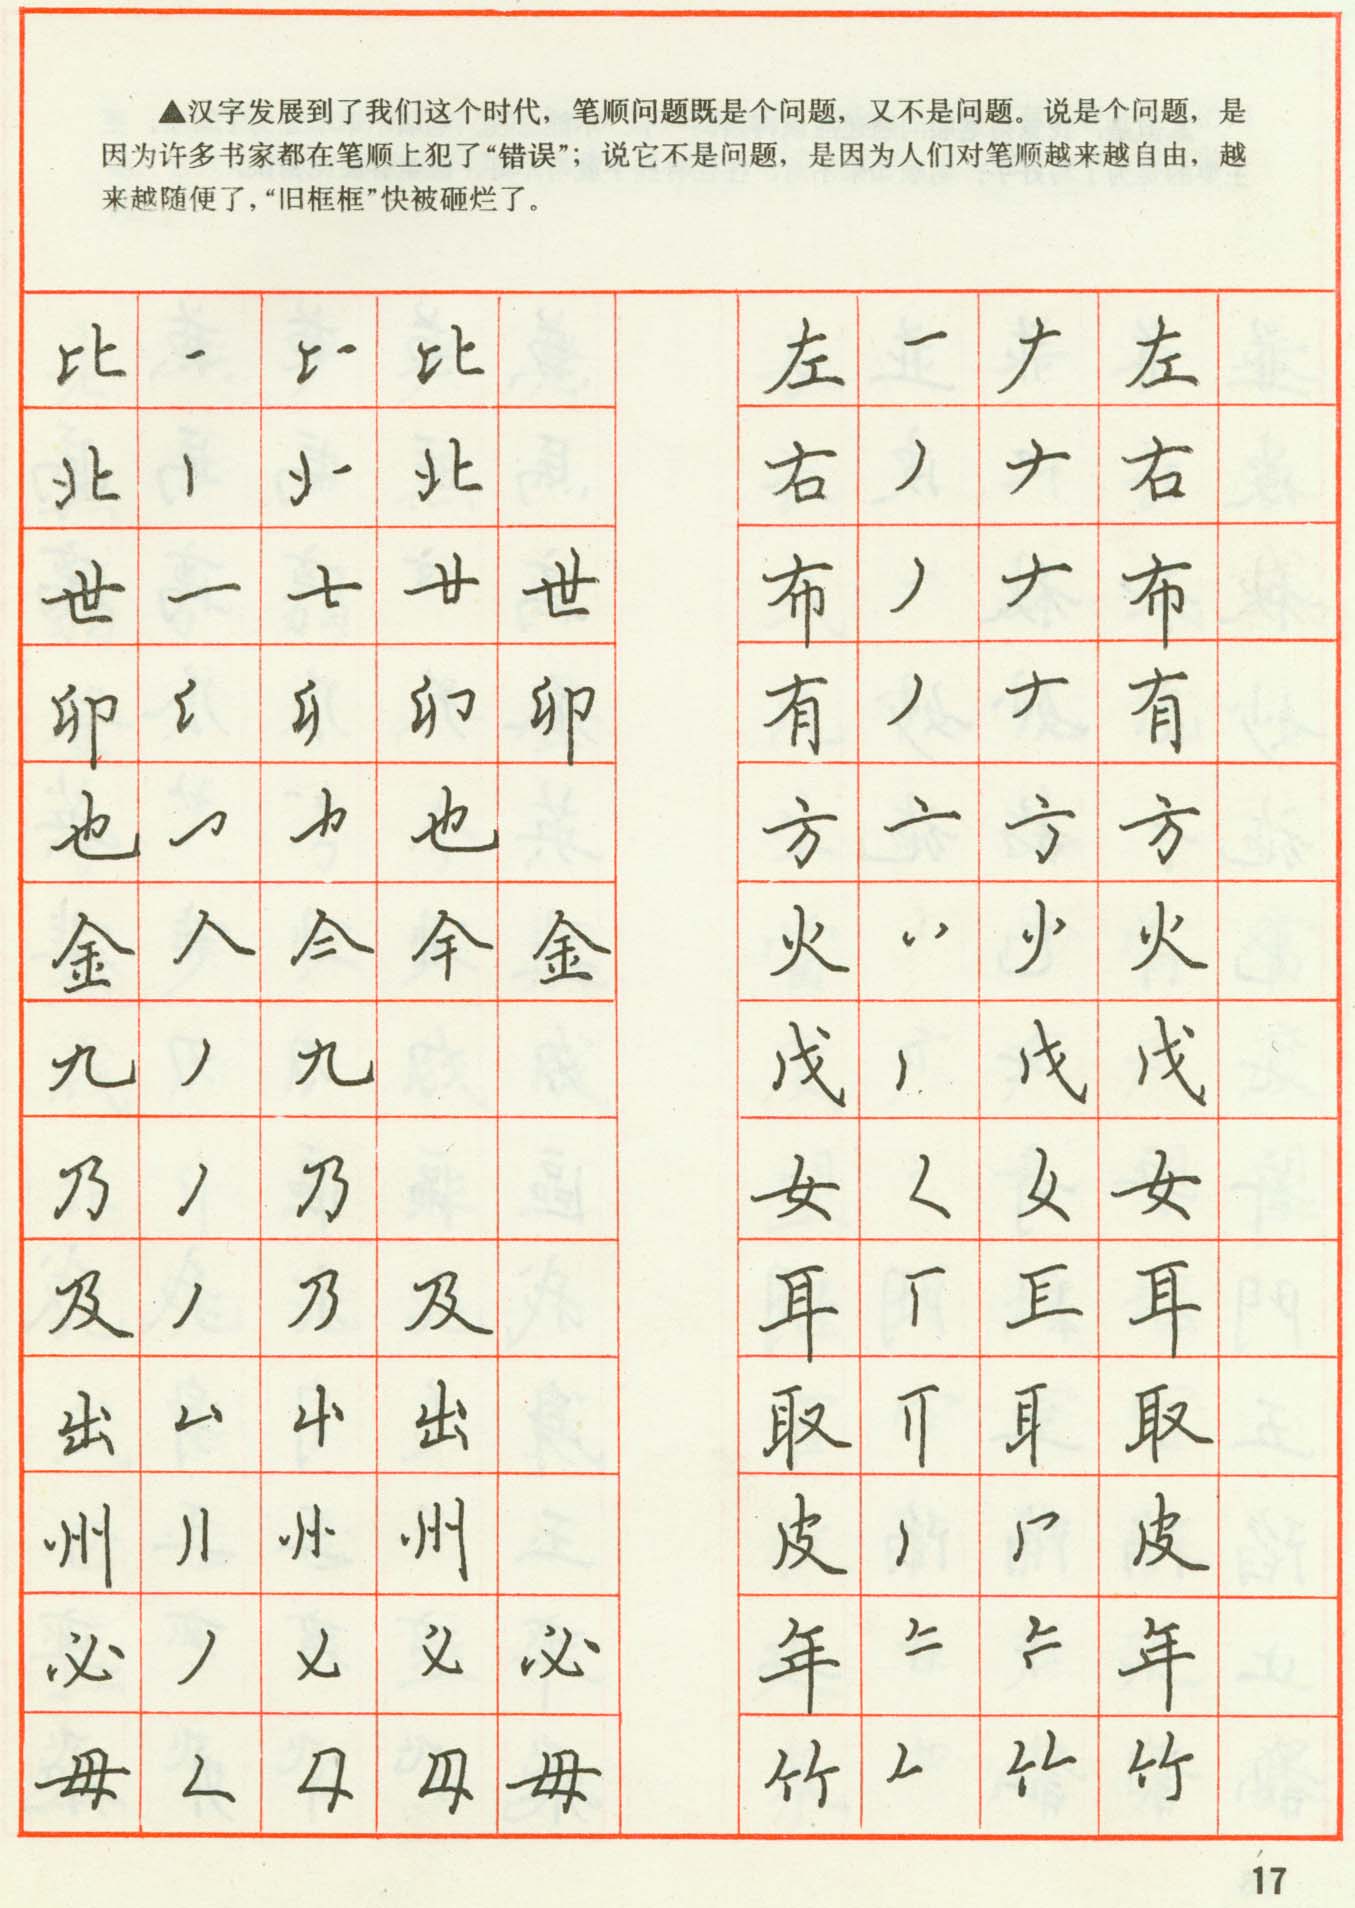 ▲汉字发展到了我们这个时代，笔顺问题既是个问题，又不是问题。说是个问题，是
因为许多书家都在笔顺上犯了“错误”；说它不是问题，是因为人们对笔顺越来越自由，越
来越随便了，“旧框框”快被砸烂了。
比 比 左 一 𠂇 左
北 丿 北 右 丿 𠂇 右
世 一 七 廿 世 布 丿 𠂇 布
卯 卯 有 丿 𠂇 有
也 也 方 亠 方
金 人 亼 金 火 火
九 丿 九 戊 丿 戊 戊
乃 丿 乃 女 女
及 丿 乃 及 耳 耳
出 出 取 耳 取
州 州 皮 丿 皮
必 丿 必 年 年
毋 毋 竹 竹
17